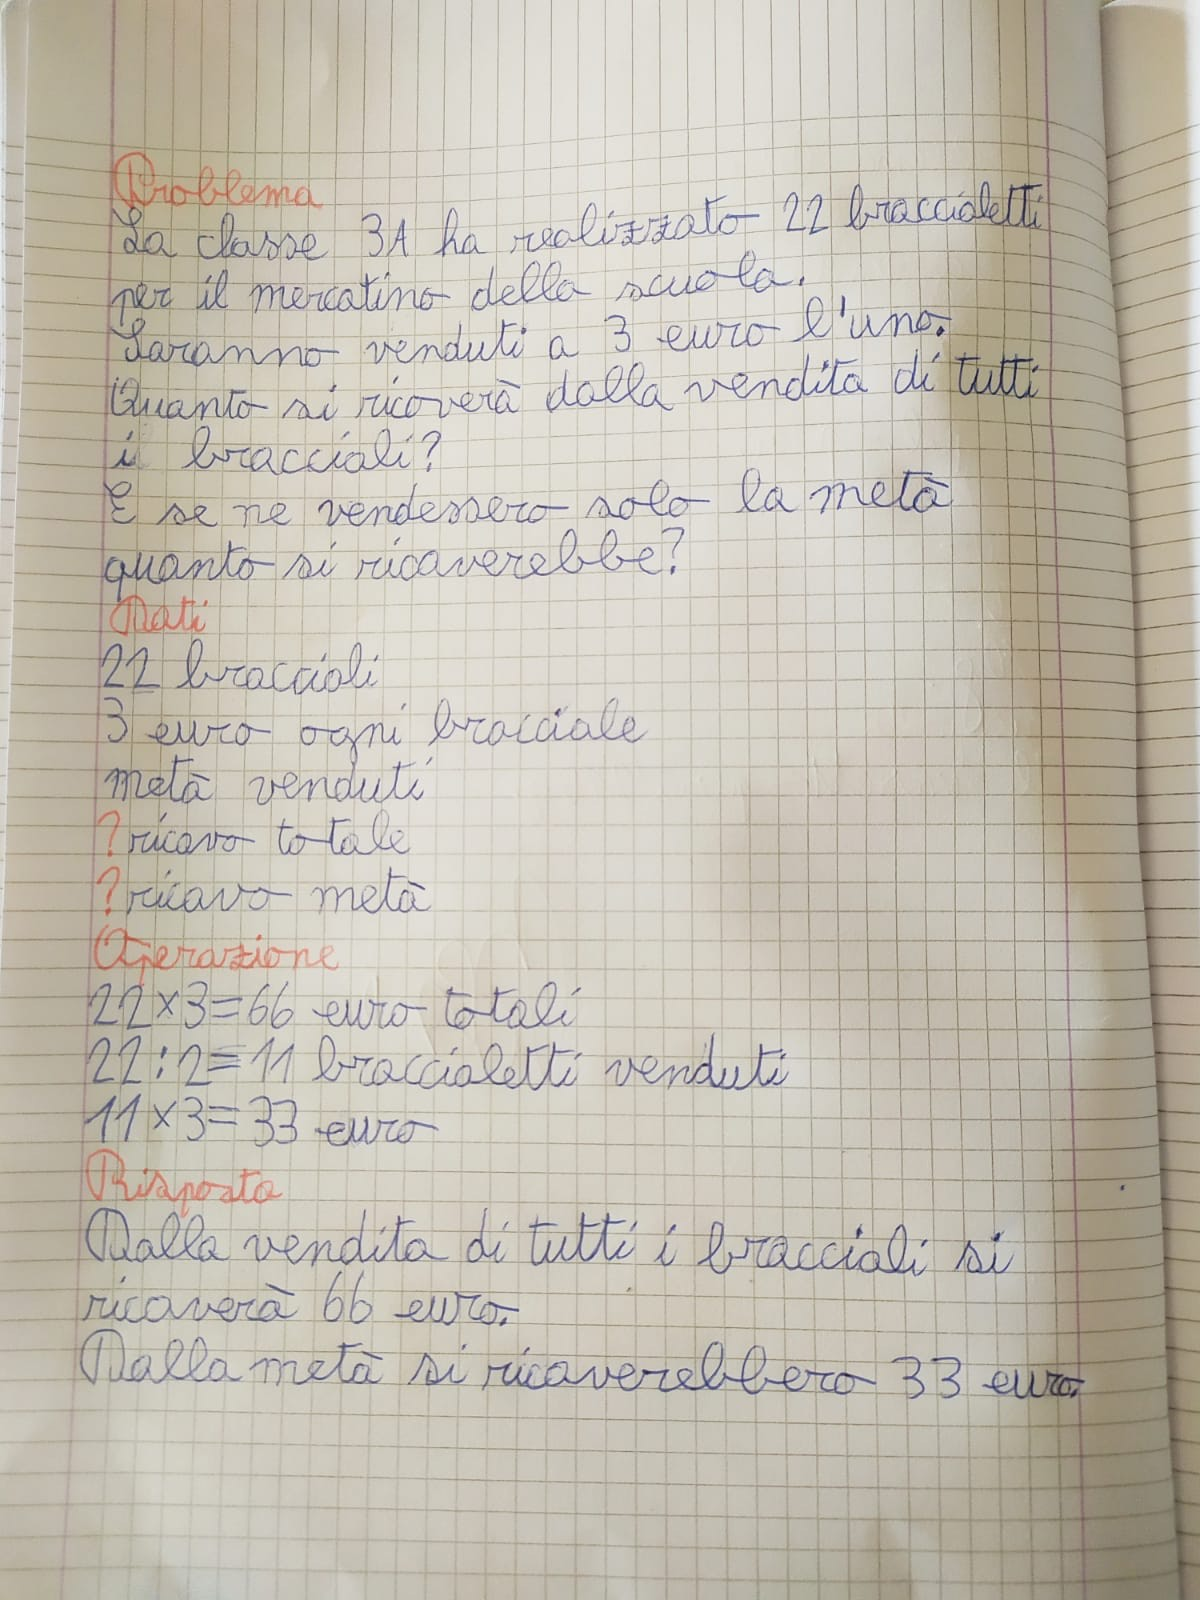 Problema
La classe 3A ha realizzato 22 braccialetti
per il mercatino della scuola.
Saranno venduti a 3 euro l'uno.
Quanto si ricaverà dalla vendita di tutti
i bracciali?
E se ne vendessero solo la metà
quanto si ricaverebbe?
Dati
22 bracciali
3 euro ogni bracciale
metà venduti
? ricavo totale
? ricavo metà
Operazione
22×3=66 euro totali
22:2=11 braccialetti venduti
11×3=33 euro
Risposta
Dalla vendita di tutti i bracciali si
ricaverà 66 euro.
Dalla metà si ricaverebbero 33 euro.